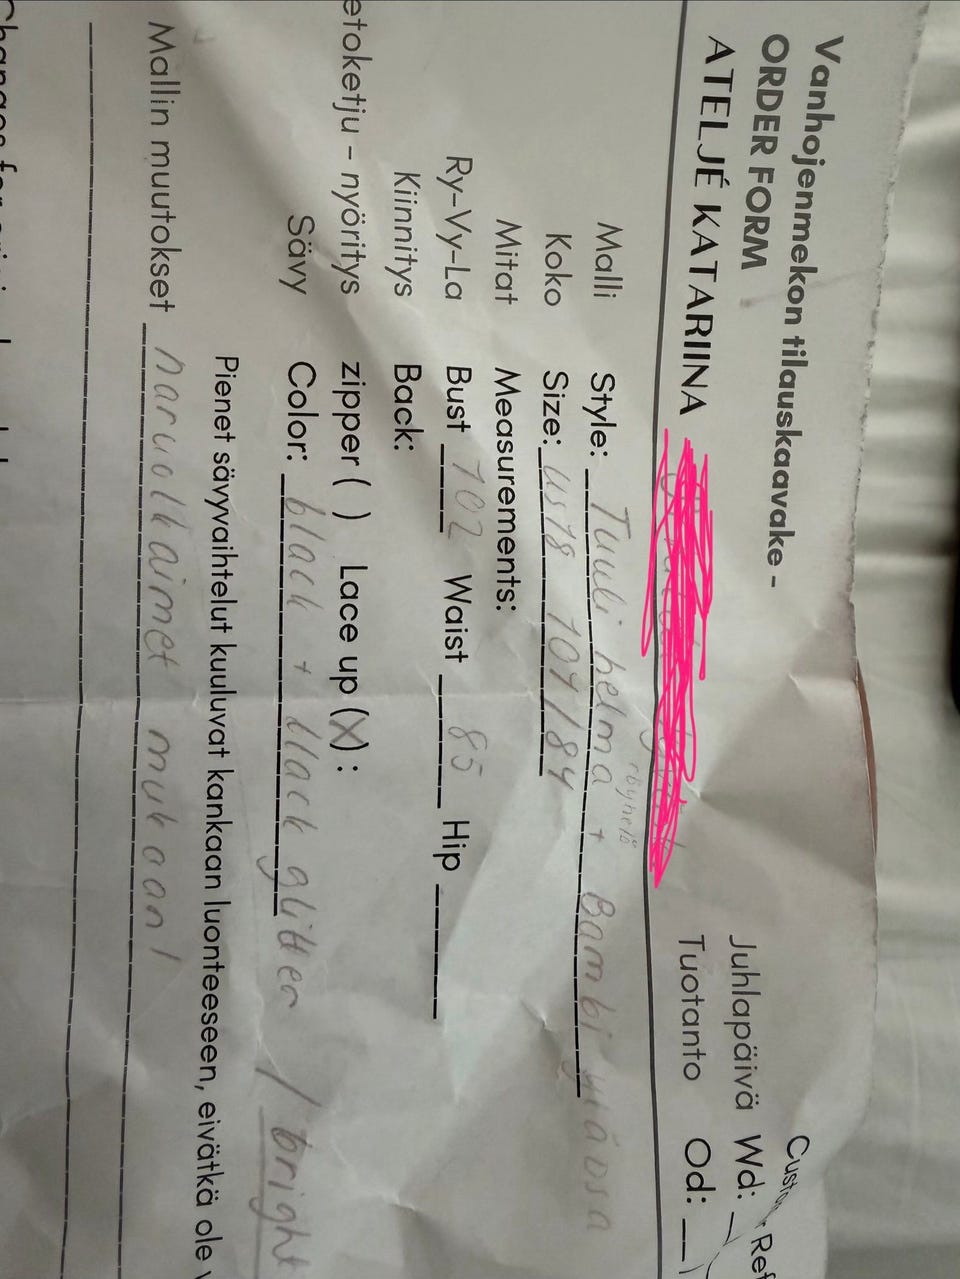 Vanhojenmekon tilauskaavake -
ORDER FORM
ATELJÉ KATARIINA
Ref
Juhlapäivä Wd:
Tuotanto Od:
röyhelö
Malli Style: Tuuli helma + Bambi yläosa
Koko Size: US18 107/84
Mitat Measurements:
Ry-Vy-La Bust 102 Waist 85 Hip
Kiinnitys Back:
etoketju - nyöritys zipper ( ) Lace up (X) :
Sävy Color: black + black glitter / bright
Pienet sävyvaihtelut kuuluvat kankaan luonteeseen, eivätkä ole
Mallin muutokset naruolkaimet mukaan!